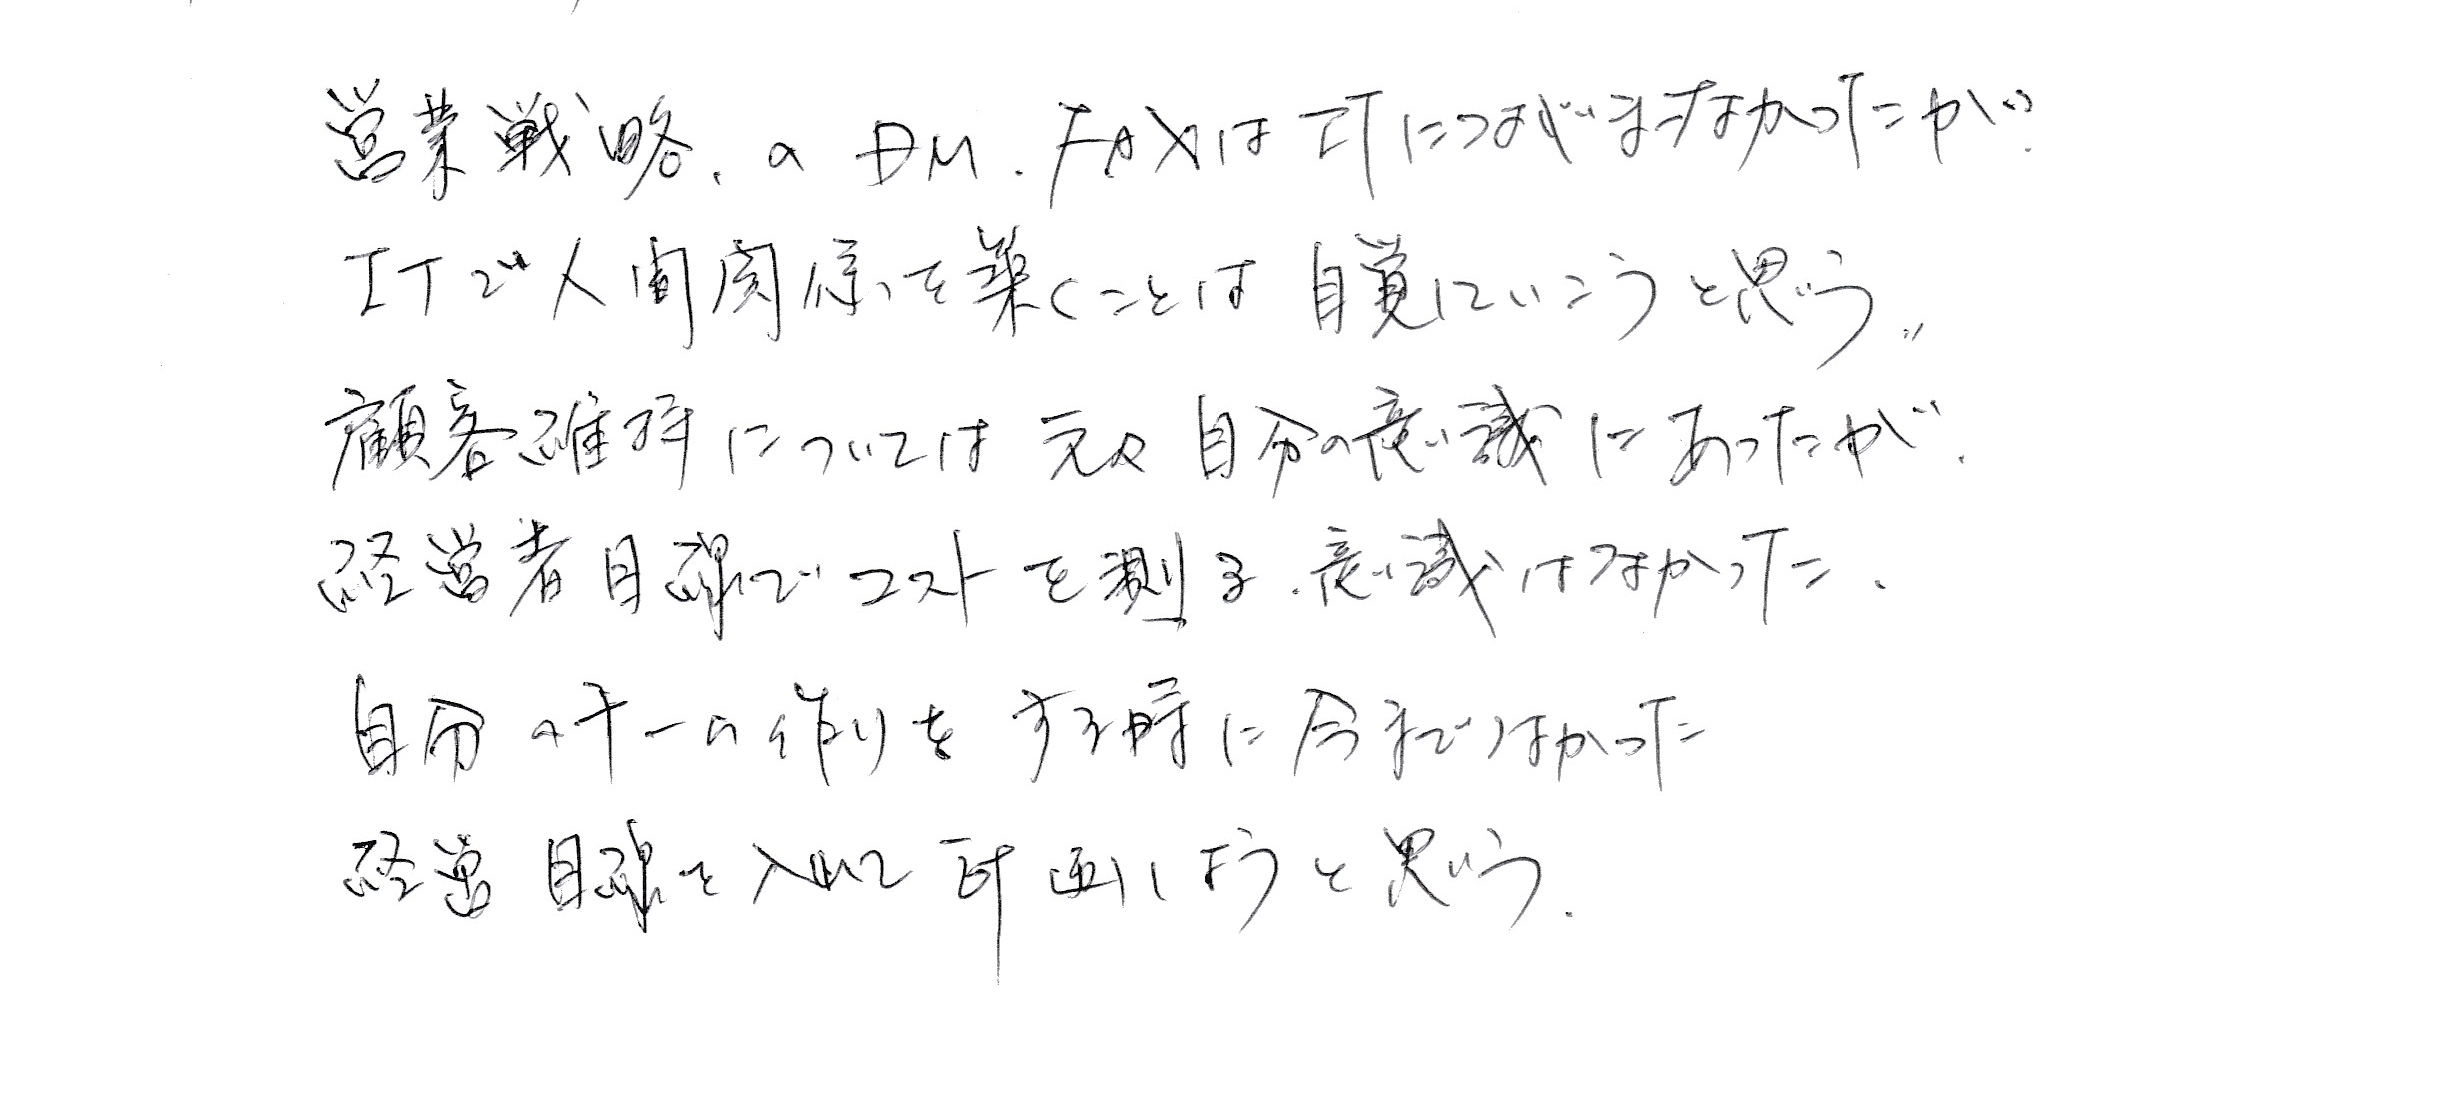 営業戦略、の DM、FAXは ITにつながいまはなかったが、
ITで人間関係を築くことは自覚していこうと思う。
顧客維持については元々自分の意識にあったが、
経営者目線でコストを測る、意識はなかった、
自分のチーム作りをする時に今までなかった
経営目線を入れて計画しようと思う。